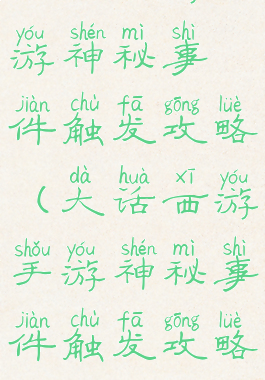 yóu shén mì shì
游神秘事
jiàn chù fā gōng lüè
件触发攻略
dà huà xī yóu
(大话西游
shǒu yóu shén mì shì
手游神秘事
jiàn chù fā gōng lüè
件触发攻略